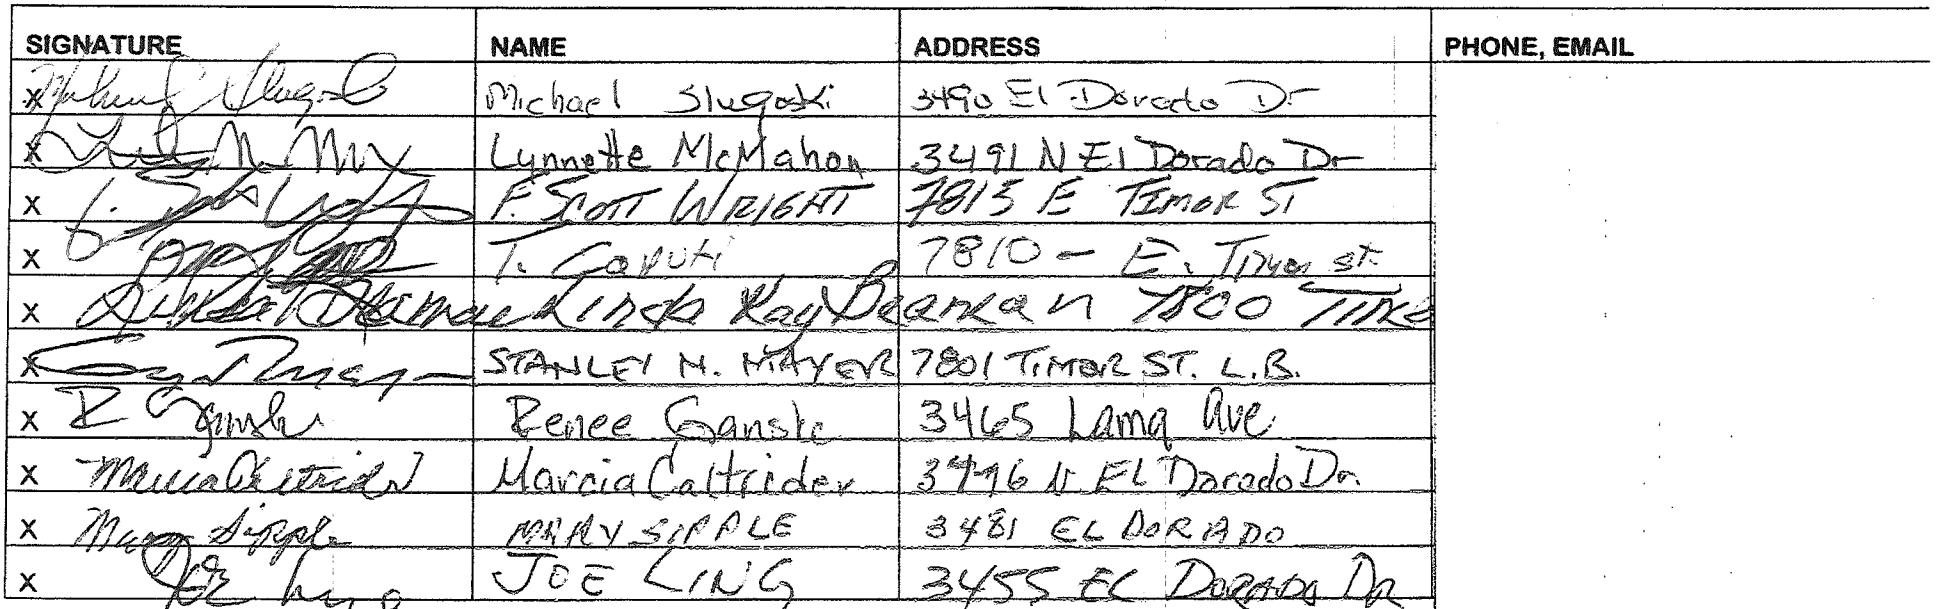 SIGNATURE NAME ADDRESS PHONE, EMAIL
X Michael Slugoski 3490 El Dorado Dr
X Lynnette McMahon 3491 N El Dorado Dr
X F. SCOTT WRIGHT 7815 E TIMOR ST
X T. Caputi 7810 - E. Timor st.
X Linda Kay 7800
X STANLEY M. MAYER 7801 TIMOR ST. L.B.
X R Renee Ganske 3465 Lama Ave
X Marcia Caltrider Marcia Caltrider 3496 N EL Dorado Dr.
X Mary Sipple MARY SIPPLE 3481 EL DORADO
X Joe Ling JOE LING 3455 EL DORADO DR